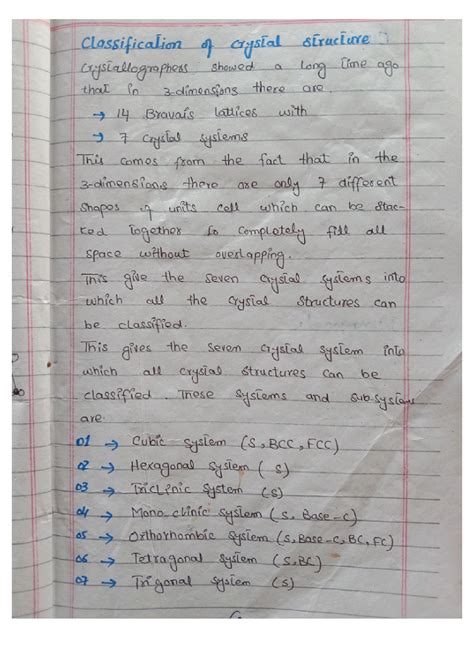 Classification of crystal structure :
Crystallographers showed a long time ago
that in 3-dimensions there are
→ 14 Bravais lattices with
→ 7 Crystal systems
This comes from the fact that in the
3-dimensions there are only 7 different
shapes of units cell which can be stac-
ked together to completely fill all
space without overlapping.
This give the seven crystal systems into
which all the crystal structures can
be classified.
This gives the seven crystal system into
which all crystal structures can be
classified. These systems and sub-systems
are.
01 → Cubic system (S, BCC, FCC)
02 → Hexagonal system (S)
03 → Triclinic system (S)
04 → Mono clinic system (S, Base-C)
05 → Orthorhombic system (S, Base-C, BC, FC)
06 → Tetragonal system (S, BC)
07 → Trigonal system (S)